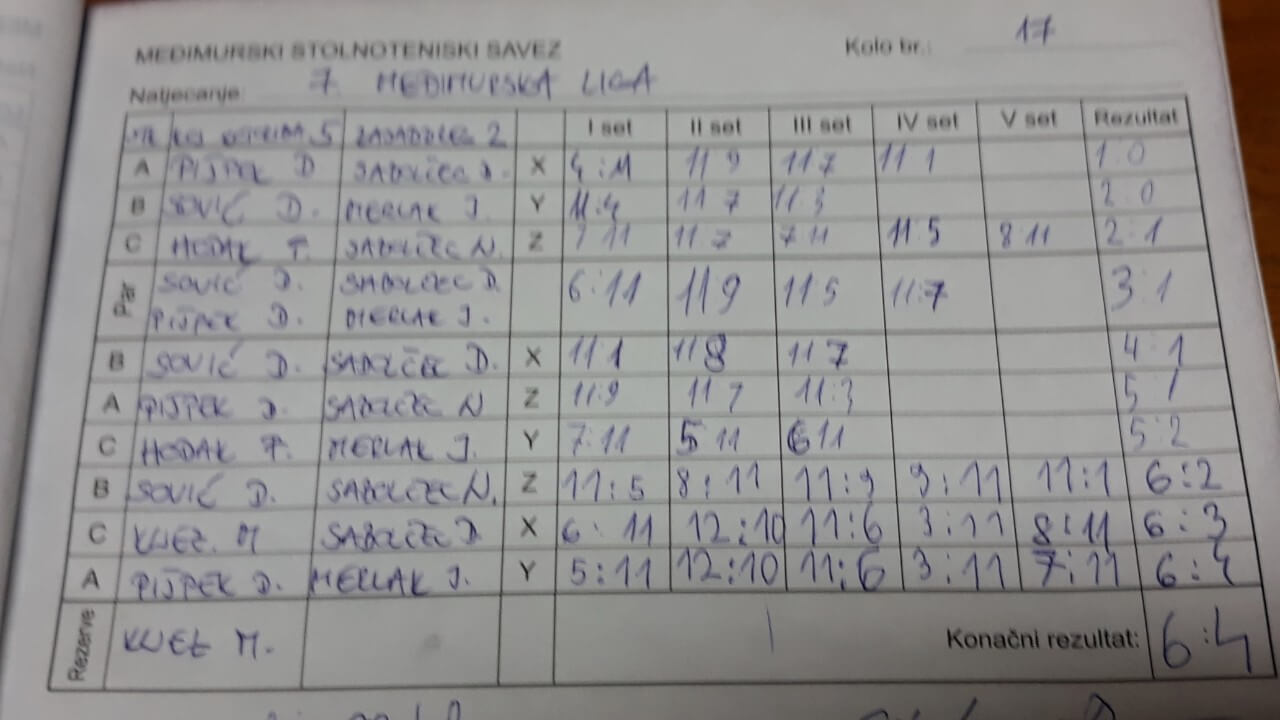 MEĐIMURSKI STOLNOTENISKI SAVEZ Kolo br.: 17
Natjecanje: 7. MEĐIMURSKA LIGA
5 2 I set II set III set IV set V set Rezultat
A PIJPEK D SABOLČEC D. X 4:11 11 9 11 7 11 1 1:0
B SOVIĆ D. MERLAK J. Y 11:4 11 7 11:3 2:0
C HODAK F. SABOLČEC N. Z 7 11 11:7 7 11 11:5 8 11 2:1
Par SOVIĆ D. SABOLČEC D. 6:11 11 9 11 5 11:7 3:1
PIJPEK D. MERLAK J.
B SOVIĆ D. SABOLČEC D. X 11 1 11 8 11 7 4:1
A PIJPEK D. SABOLČEC N Z 11:9 11 7 11:3 5:1
C HODAK F. MERLAK J. Y 7:11 5 11 6 11 5:2
B SOVIĆ D. SABOLČEC N. Z 11:5 8:11 11:9 9:11 11:1 6:2
C KNEZ. M SABOLČEC D X 6:11 12:10 11:6 3:11 8:11 6:3
A PIJPEK D. MERLAK J. Y 5:11 12:10 11:6 3:11 7:11 6:4
Rezerve KNEZ M. Konačni rezultat: 6:4